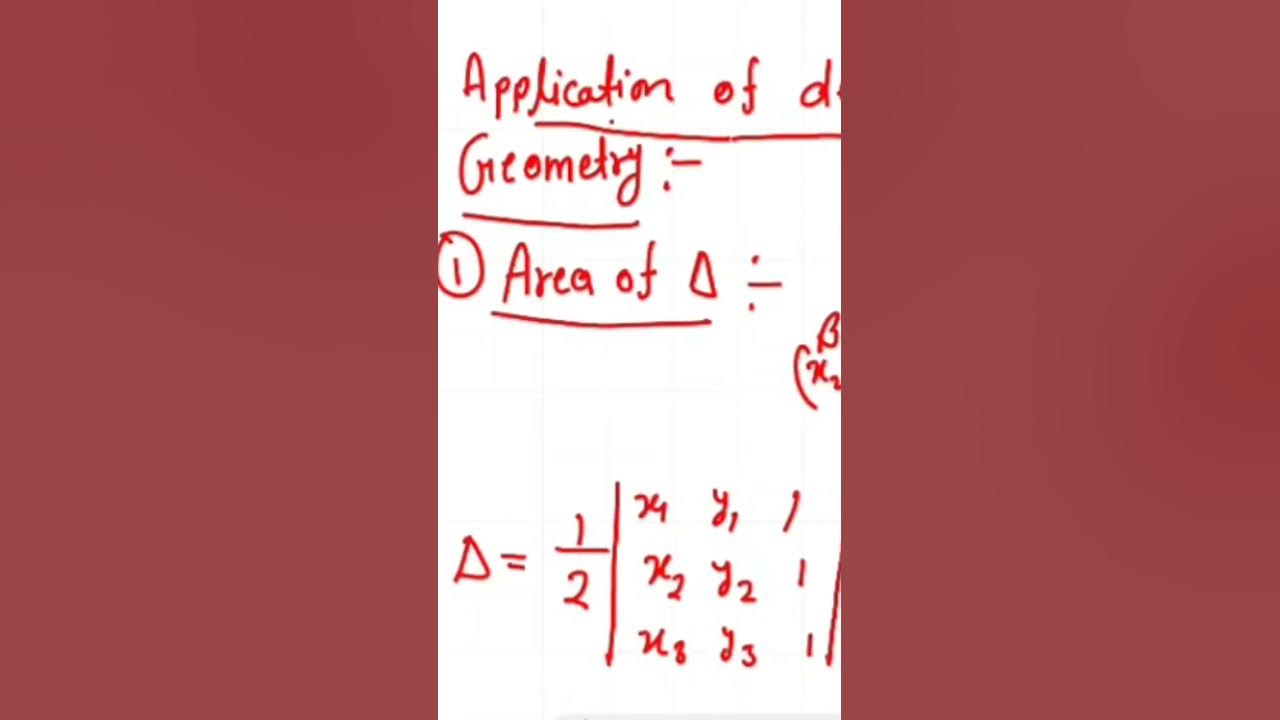 Application of d
Geometry :-
① Area of Δ :-
B
(x₂
Δ = 1/2 | x₁ y₁ 1
x₂ y₂ 1
x₃ y₃ 1 |